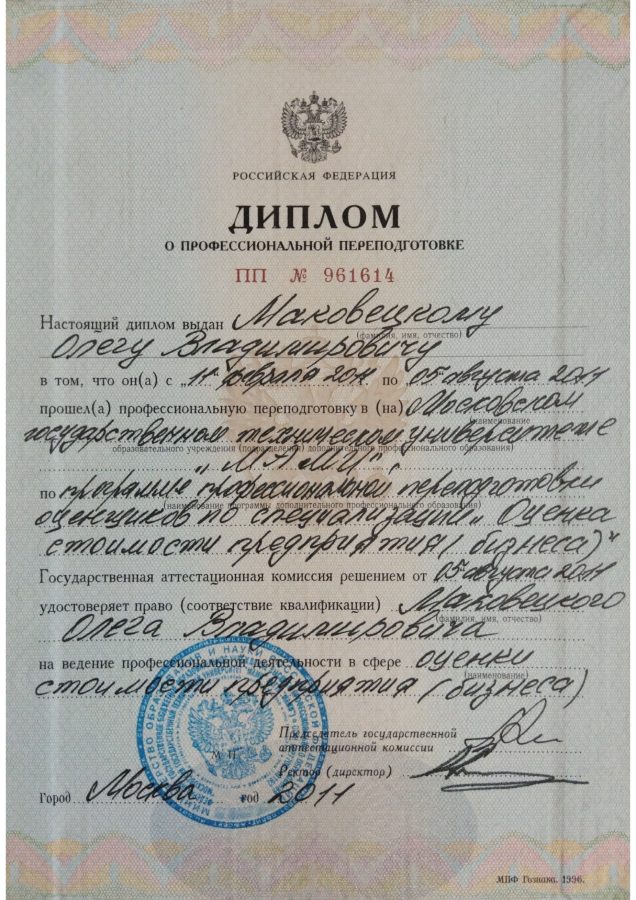 РОССИЙСКАЯ ФЕДЕРАЦИЯ
ДИПЛОМ
О ПРОФЕССИОНАЛЬНОЙ ПЕРЕПОДГОТОВКЕ
ПП № 961614
Настоящий диплом выдан Маковецкому
(фамилия, имя, отчество)
Олегу Владимировичу
в том, что он(а) с „11" февраля 2011 по 05 августа 2011
прошел(а) профессиональную переподготовку в (на) Московском
(наименование
государственном техническом университете
образовательного учреждения (подразделения) дополнительного профессионального образования)
„МАМИ",
по программе профессиональной переподготовки
(наименование программы дополнительного профессионального образования)
оценщиков по специализации „Оценка
стоимости предприятия (бизнеса)"
Государственная аттестационная комиссия решением от 05 августа 2011
удостоверяет право (соответствие квалификации) Маковецкого
(фамилия, имя, отчество)
Олега Владимировича
на ведение профессиональной деятельности в сфере оценки
(наименование)
стоимости предприятия (бизнеса)
Председатель государственной
аттестационной комиссии
Ректор (директор)
М.П.
Город Москва год 2011
МПФ Гознака. 1996.